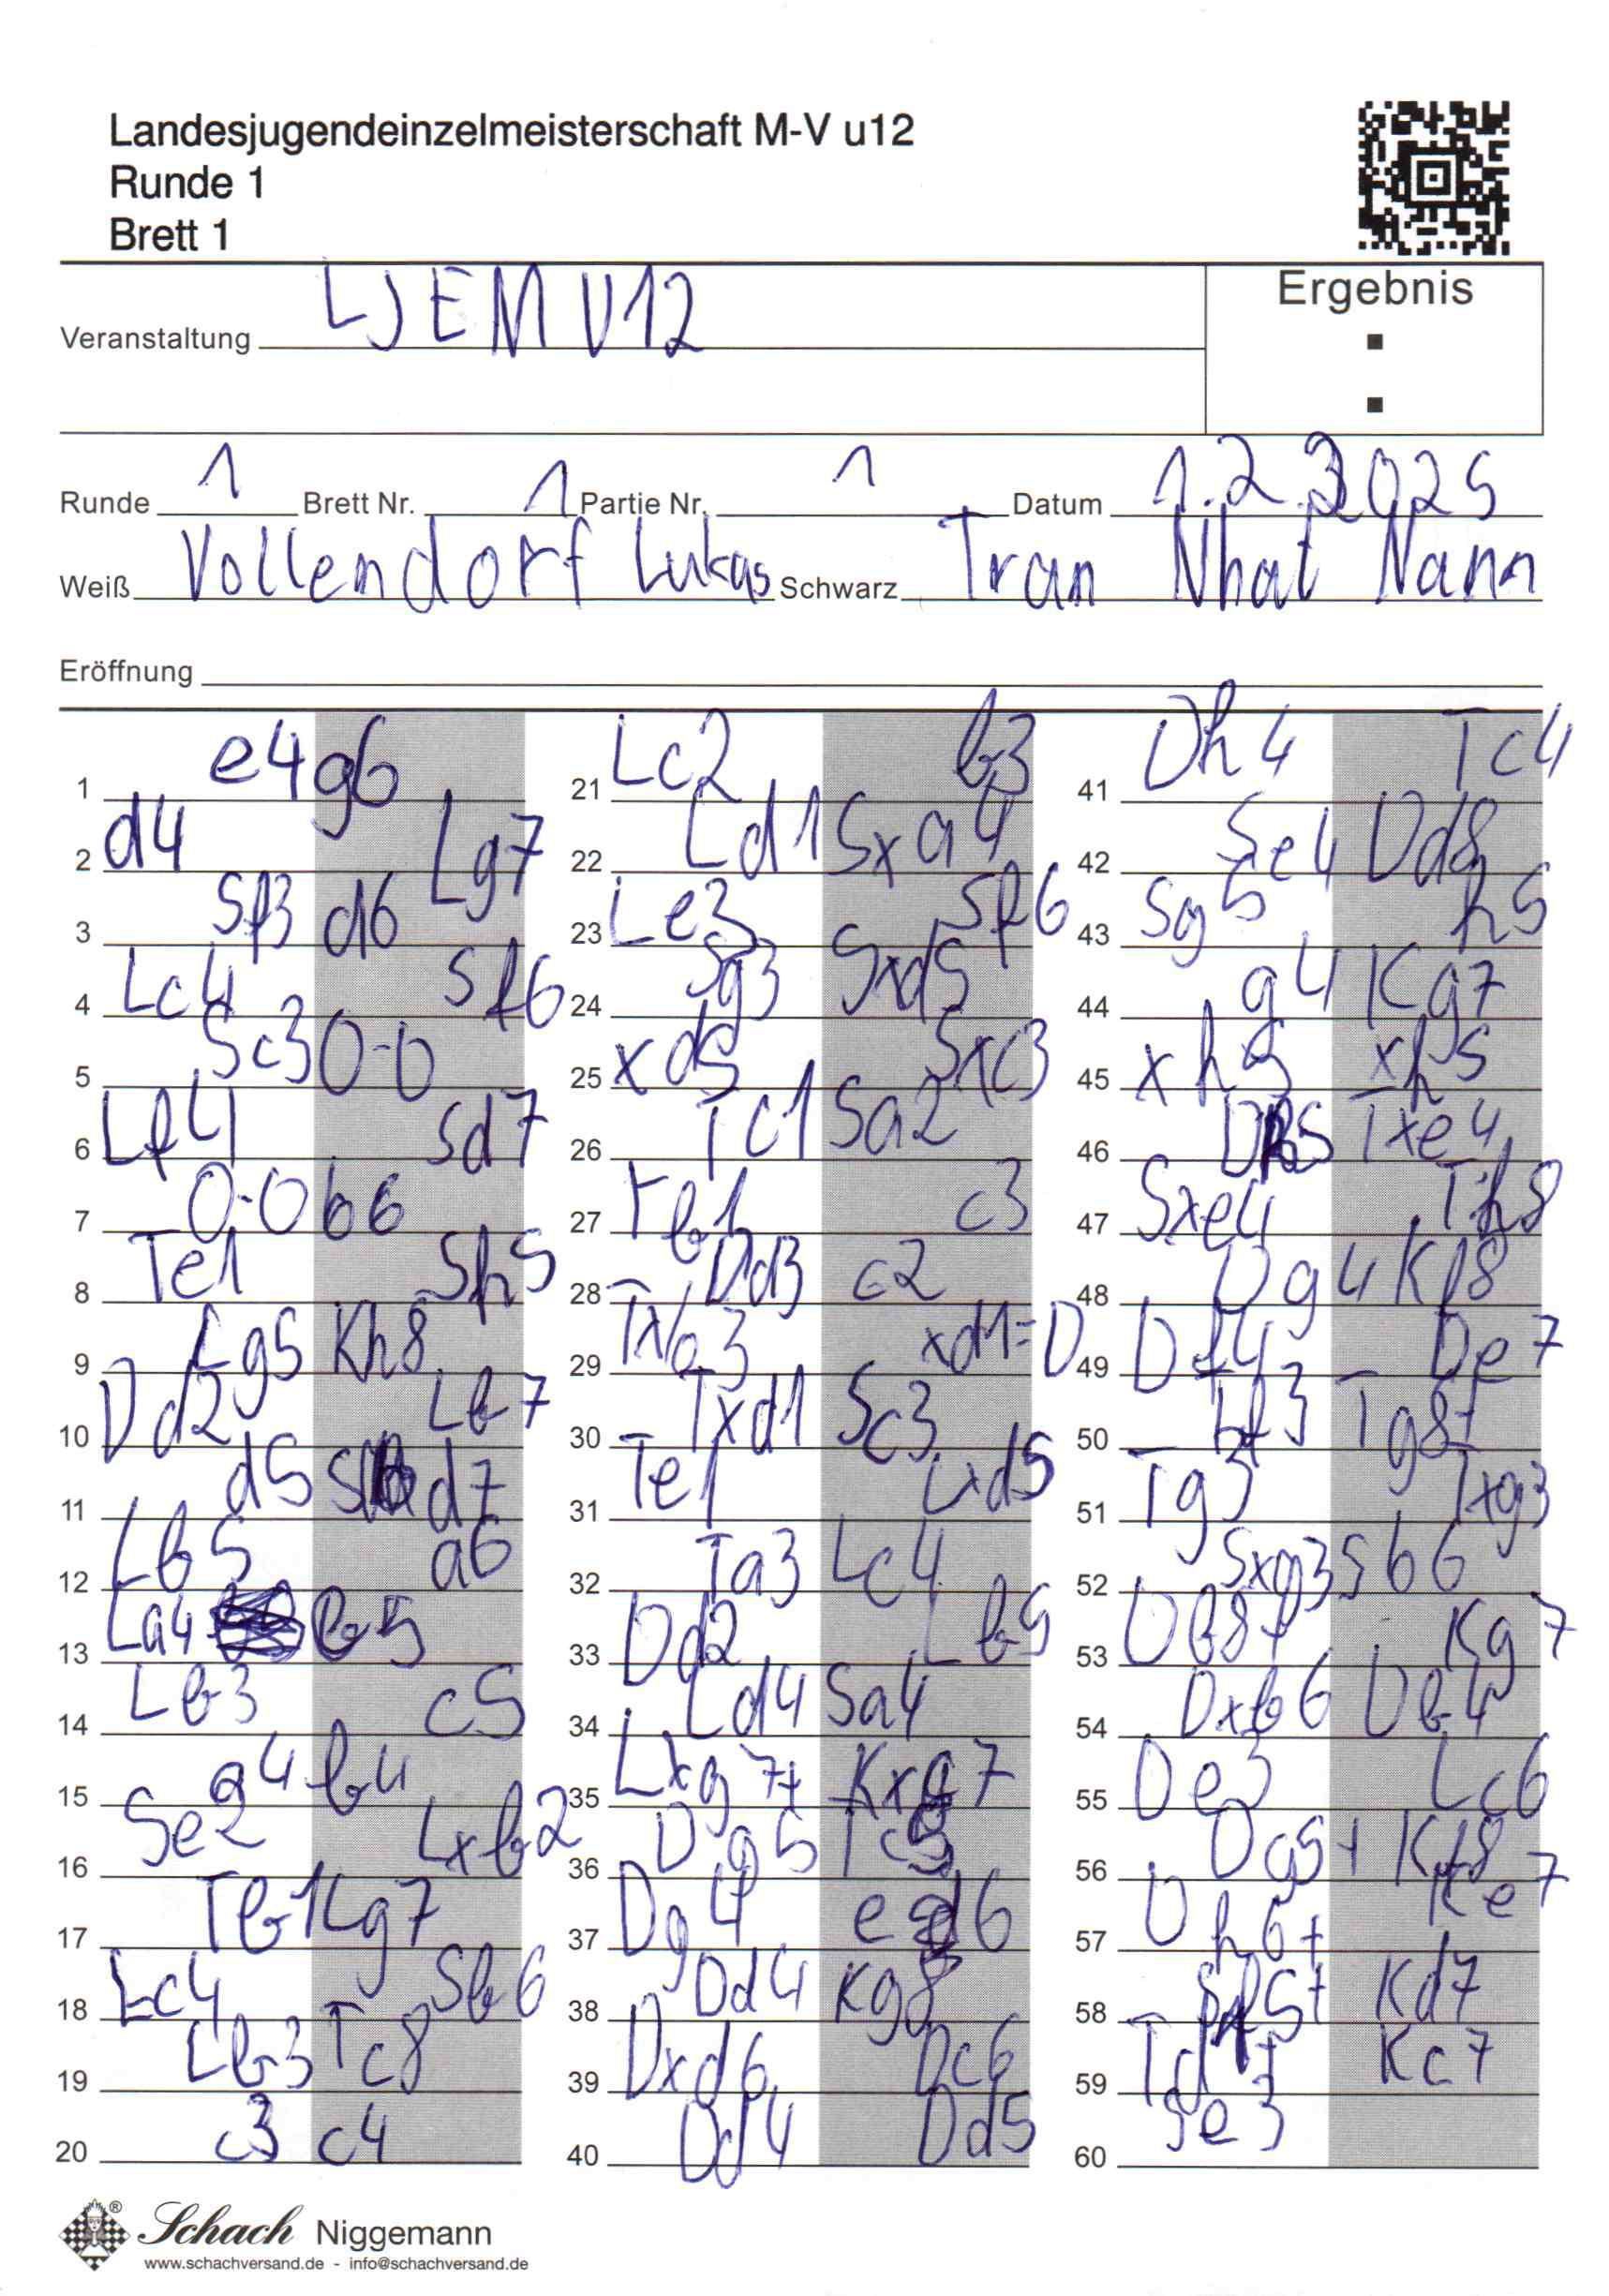 Landesjugendeinzelmeisterschaft M-V u12
Runde 1
Brett 1
Ergebnis
:
Veranstaltung LJEM U12
Runde 1 Brett Nr. 1 Partie Nr. 1 Datum 1.2.2025
Weiß Vollendorf Lukas Schwarz Tran Nhat Nann
Eröffnung
1 e4 g6
2 d4 Lg7
3 Sf3 d6
4 Lc4 Sf6
5 Sc3 0-0
6 Lf4 Sd7
7 0-0 b6
8 Te1 Sh5
9 Lg5 Kh8
10 Dd2 Lb7
11 d5 Sd7
12 Lb5 a6
13 La4 b5
14 Lb3 c5
15 a4 b4
16 Se2 Lxb2
17 Tb1 Lg7
18 Lc4 Sb6
19 Lb3 Tc8
20 c3 c4
21 Lc2 b3
22 Ld1 Sxa4
23 Le3 Sf6
24 Sg3 Sxd5
25 xd5 Sxc3
26 Tc1 Sa2
27 Tb1 c3
28 Dd3 c2
29 Txb3 xd1=D
30 Txd1 Sc3
31 Te1 Lxd5
32 Ta3 Lc4
33 Dd2 Lb5
34 Ld4 Sa4
35 Lxg7+ Kxg7
36 Dg5 Tc5
37 Dg4 e d6
38 Dd4 Kg8
39 Dxd6 Dc6
40 Dd4 Dd5
41 Dh4 Tc4
42 Se4 Dd8
43 Sg5 h5
44 g4 Kg7
45 xh5 xh5
46 Dh5 Txe4
47 Sxe4 Th8
48 Dg4 Kf8
49 Df4 De7
50 Tf3 Tg8+
51 Tg3 Txg3
52 Sxg3 Sb6
53 Db8+ Kg7
54 Dxb6 Db4
55 De3 Lc6
56 Dg5+ Kf8
57 Dh6+ Ke7
58 Sf5+ Kd7
59 Td1+ Kc7
60 Se3
Schach Niggemann
www.schachversand.de - info@schachversand.de